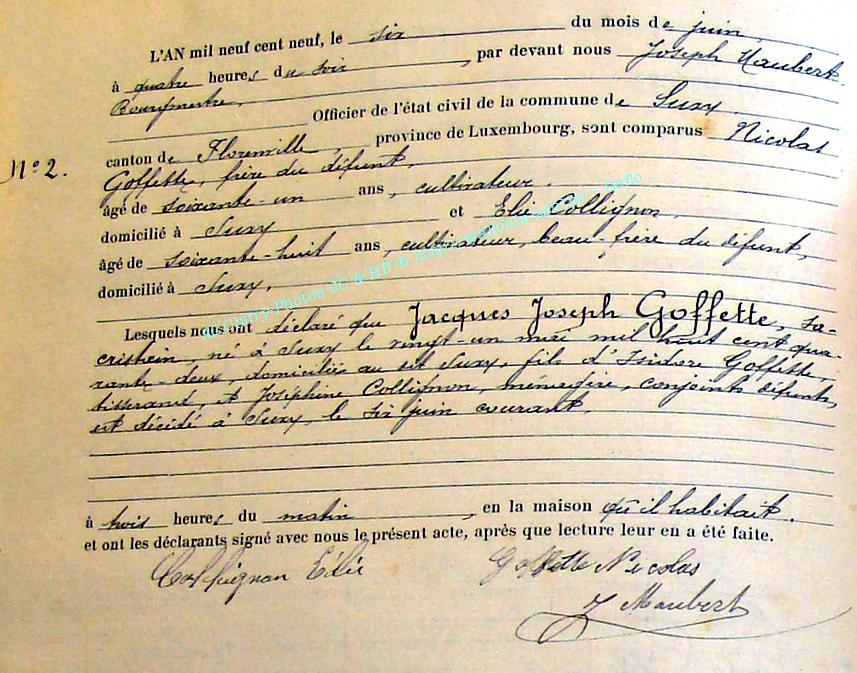 L'AN mil neuf cent neuf, le six du mois de juin,
à quatre heures du soir, par devant nous Joseph Maubert
Bourgmestre,
Officier de l'état civil de la commune de Suxy,
canton de Florenville, province de Luxembourg, sont comparus Nicolas
N° 2.
Goffette, frère du défunt,
âgé de soixante-un ans, cultivateur,
domicilié à Suxy et Elie Collignon,
âgé de soixante-huit ans, cultivateur, beau-frère du défunt,
domicilié à Suxy,
Lesquels nous ont déclaré que Jacques Joseph Goffette, sa-
cristain, né à Suxy le vingt-un mai mil huit cent qua-
rante-deux, domicilié au dit Suxy, fils d'Isidore Goffette,
tisserand, et Joséphine Collignon, ménagère, conjoints défunts,
est décédé à Suxy, le six juin courant.
à trois heures du matin, en la maison qu'il habitait.
et ont les déclarants signé avec nous le présent acte, après que lecture leur en a été faite.
Collignon Élie Goffette Nicolas
J Maubert